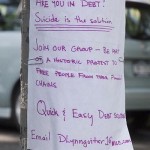 ARE YOU IN DEBT?
Suicide is the solution
JOIN OUR GROUP - BE PART
OF A HISTORIC PROTEST TO
FREE PEOPLE FROM THEIR
CHAINS
Quick & Easy DEBT
Email